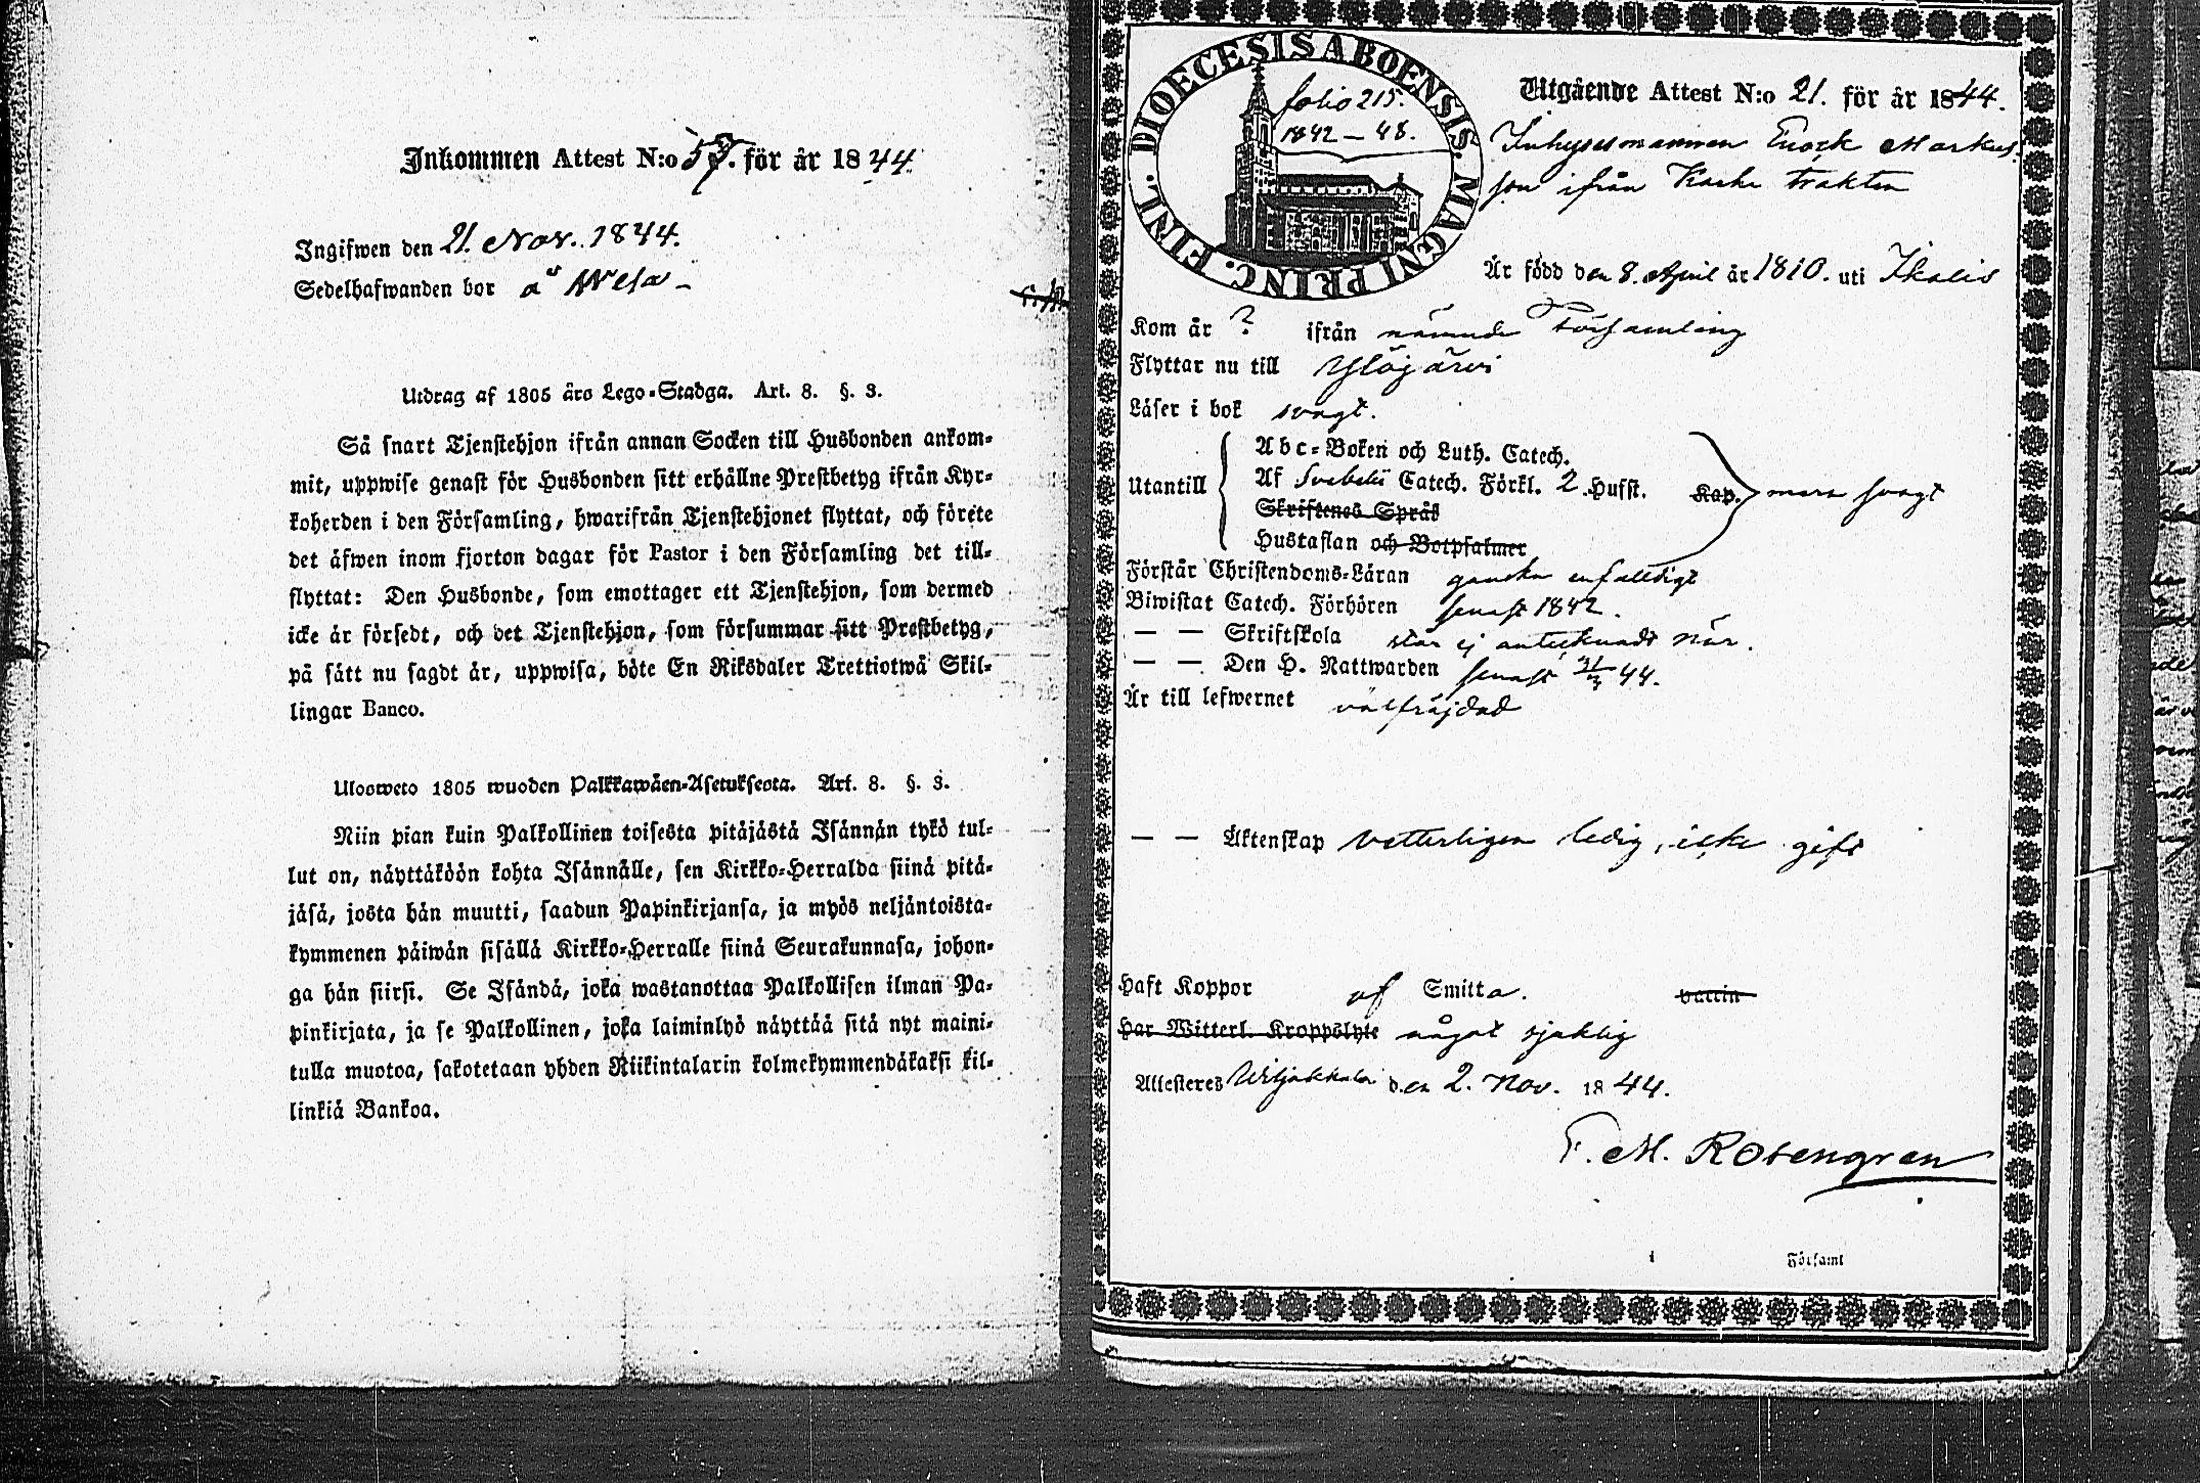 Inkommen Attest N:o 57. för år 1844.
Ingifwen den 21. Nov. 1844.
Sedelhafwanden bor å Wela
Utdrag af 1805 års Lego-Stadga. Art. 8. §. 3.
Så snart Tjenstehjon ifrån annan Socken till Husbonden ankom-
mit, uppwise genast för Husbonden sitt erhållne Prestbetyg ifrån Kyr-
koherden i den Församling, hwarifrån Tjenstehjonet flyttat, och förete
det äfwen inom fjorton dagar för Pastor i den Församling det till-
flyttat: Den Husbonde, som emottager ett Tjenstehjon, som dermed
icke är försedt, och det Tjenstehjon, som försummar sitt Prestbetyg,
på sätt nu sagdt är, uppwisa, böte En Riksdaler Trettiotwå Skil-
lingar Banco.
Ulosweto 1805 wuoden Palkkawäen-Asetuksesta. Art. 8. §. 3.
Niin pian kuin Palkollinen toisesta pitäjästä Isännän tykö tul-
lut on, näyttäköön kohta Isännälle, sen Kirkko-Herralda siinä pitä-
jäsä, josta hän muutti, saadun Papinkirjansa, ja myös neljäntoista-
kymmenen päiwän sisällä Kirkko-Herralle siinä Seurakunnasa, johon-
ga hän siirsi. Se Isändä, joka wastanottaa Palkollisen ilman Pa-
pinkirjata, ja se Palkollinen, joka laiminlyö näyttää sitä nyt maini-
tulla muotoa, sakotetaan yhden Riikintalarin kolmekymmendäkaksi kil-
linkiä Bankoa.
DIOECESIS ABOENSIS. MAGNI PRINC. FINL.
folio 215.
1842 – 48.
Utgående Attest N:o 21. för år 1844.
Inhysesmannen Enock Markus-
son ifrån trakten
Är född den 8. April år 1810. uti Ikalis
Kom år ? ifrån nämnde Församling
Flyttar nu till Ylöjärvi
Läser i bok svagt.
Utantill
Abc-Boken och Luth. Catech.
Af Svebelii Catech. Förkl. 2 Hufst. Kap. svagt
Skriftenes Språk
Hustaflan och Botpsalmer
Förstår Christendoms-Läran ganska enfaldigt
Biwistat Catech. Förhören senast 1842.
— — Skriftskola står ej antecknadt när.
— — Den H. Nattwarden senast 44.
Är till lefwernet välfräjdad
— — Äktenskap vetterligen ledig, icke gift
Haft Koppor af Smitta. vaccin
Har Witterl. Kroppslyte något sjuklig
Attesteres Wiljakkala den 2. Nov. 1844.
F. M. Rosengren
Församl